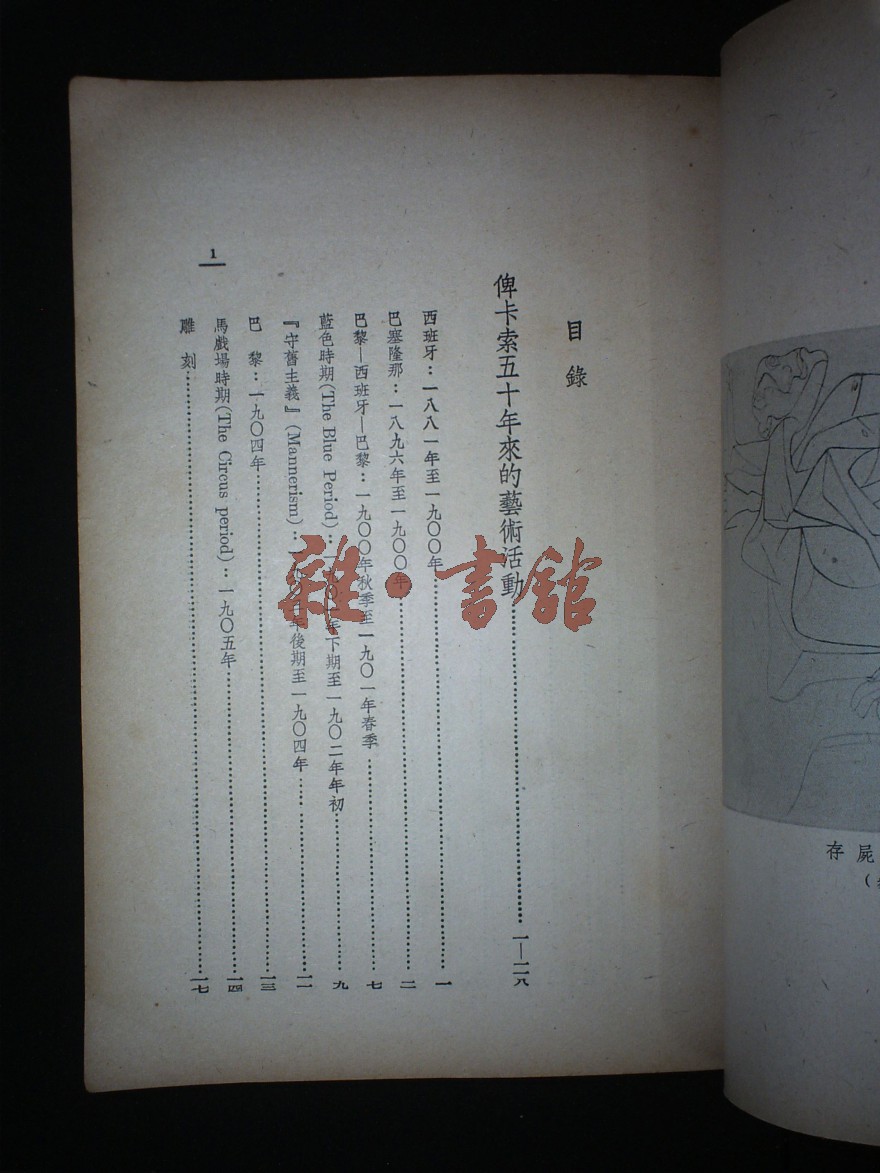 目錄
俾卡索五十年來的藝術活動……一—一一八
西班牙：一八八一年至一九〇〇年……一
巴塞隆那：一八九六年至一九〇〇年……二
巴黎—西班牙—巴黎：一九〇〇年秋季至一九〇一年春季……七
藍色時期(The Blue Period)：年下期至一九〇二年年初……九
『守舊主義』(Mannerism)：年後期至一九〇四年……一一
巴黎：一九〇四年……一三
馬戲場時期(The Circus period)：一九〇五年……一四
雕刻……一七
1
雜·書館
屍存